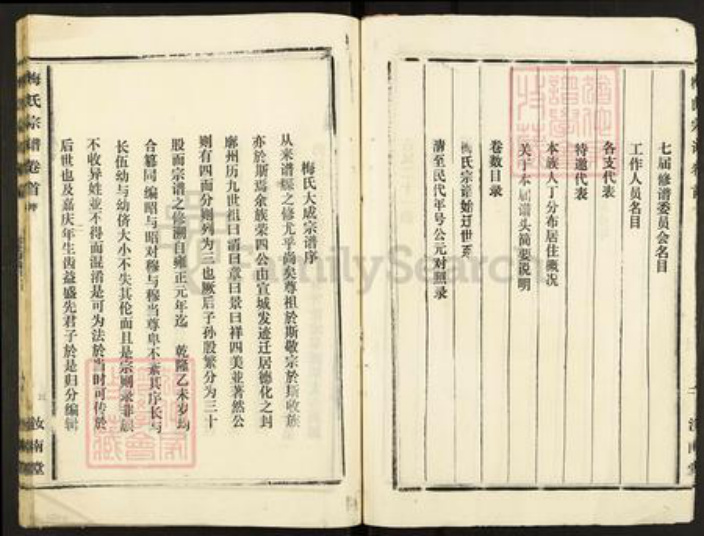 七届修谱委员会名目
工作人员名目
各支代表
特邀代表
本族人丁分布居住概况
关于本届谱头简要说明
卷数目录
梅氏宗谱始迁世系
清至民代年号公元对照录
梅氏大成宗谱序
从来谱牒之修尤乎尚矣尊祖於斯敬宗於斯收族
亦於斯焉余族荣四公由宣城发迹迁居德化之封
廓州历九世祖曰渭曰章曰景曰祥四美並著然公
则有四而分则列为三也厥后子孙殷繁分为三十
股而宗谱之修溯自雍正元年迄 乾隆乙未岁均
合纂同编昭与昭对穆与穆当尊卑不紊其序长与
长伍幼与幼侪大小不失其伦而且是宗则录非族
不收异姓並不得而混淆是可为法於当时可传於
后世也及嘉庆年生齿益盛先君子於是归分编辑
梅氏宗谱卷首
汝南堂
FamilySearch